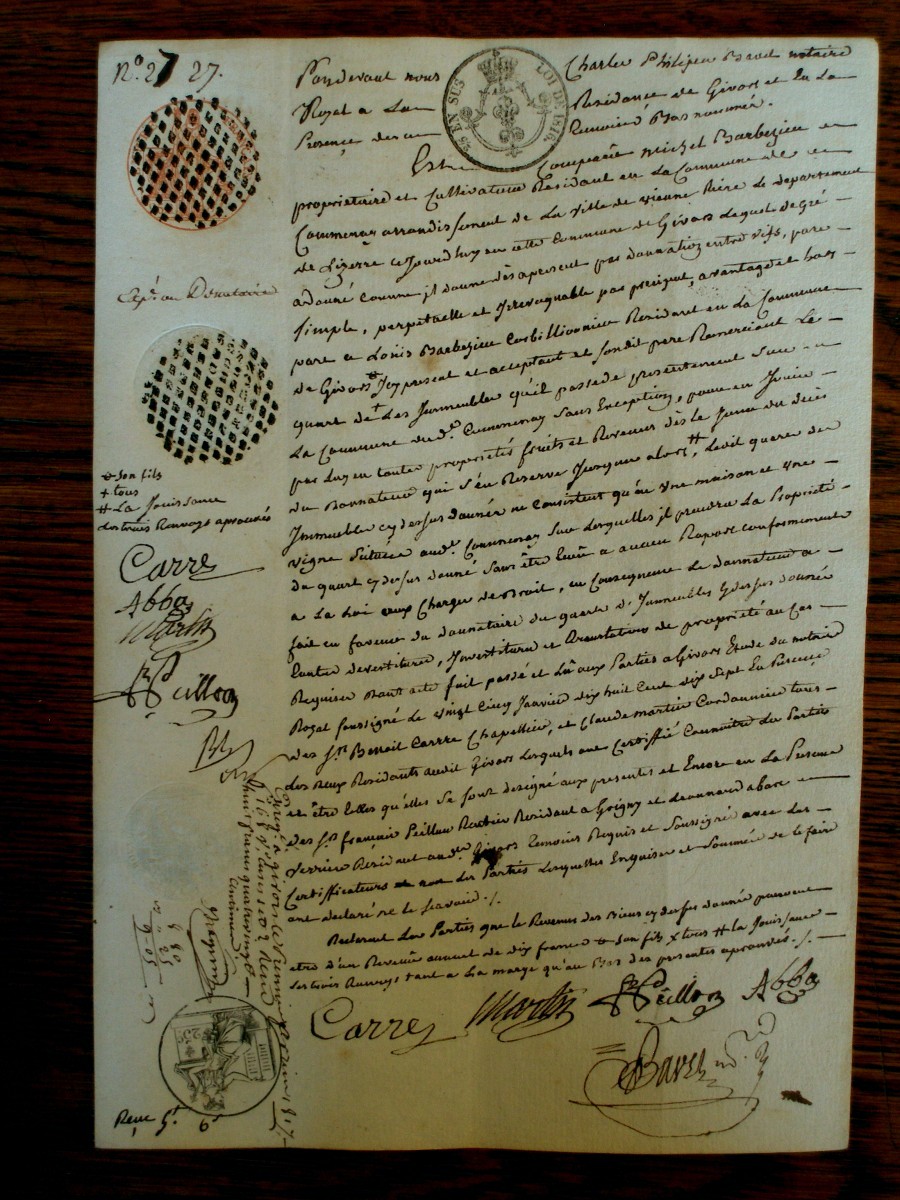 N°. 27 27.
Pardevant nous Charles Philipeu Bavet notaire
Royal a La Residance de Givors et En La
Presence des Temoins Bas nommés.
25 EN SUS LOI DE 1816
Est Comparu Michel Barbezieu
propriétaire et Cultivateur Residant en La Commune de
Communay arrondissement de La ville de vienne Rière Le departement
de Lizerre cejourdhuy en cette Commune de Givors Lequel de gré
a donné comme jl donne dès apresent par donnation entre vifs, pure
simple, perpetuelle et Irrevoquable par préciput, avantage et hors
part a Louis Barbezieu Corbillionnier Residant en La Commune
de Givors Jcy present et acceptant et sondit pere Remerciant Le
quart de + Les Immeubles qu'il possede presentement Sur
La Commune dud. Communay Sans Exception, pour en Jouir
par Luy en toutes propriétés fruits et Revenus dès le Jour du déces
du Donnateur qui s'en Reserve Jusques alors #, Ledit quart des
Immeubles cy dessus donnés ne Consistent qu'en Une maison et Une
vigne Situées aud. Communay Sur Lesquelles jl prendra La Propriété
du quart cy dessus donné Sans être tenu a aucun Raport conformement
a La Loi aux Charges de Droit, en Consequence Le donnateur a
fait en faveur du donnataire du quart d'Immeubles cy dessus donnés
toutes devestiture, Investiture et translation de propriété au Cas
Requises Dont acte fait passé et Lû aux Parties a Givors Etude du notaire
Royal soussigné Le vingt Cinq Janvier dix huit Cent dix Sept En Presence
des Srs. Benoit Carre Chapellier, et Claude martin Cordonnier tous
les deux Residants audit Givors Lesquels ont Certiffié Connoitre Les Parties
et être telles qu'elles Se sont designé aux presentes et Encore en La Presence
des Srs. francois Peillon Residant a Grigny et abax
verrier Résident aud. Givors Temoins Requis et Soussignés avec Les
Certifficateurs non Les Parties Lesquelles Enquises et Sommées de le faire
ont declaré ne le Scavoir ./.
Declarent Les Parties que le Revenus des Biens cy dessus donnés peuvent
etre d'un Revenu annuel de dix francs Son fils + tous # La Jouissance
Les trois Renvoys tant a La marge qu'au Bas des presentes aprouvés ./.
Carre Martin Peillon Abba
Bavet
Expé. au Donataire
Son fils
+ tous
# La Jouissance
Les trois Renvoys aprouvés
Carre
Abba
Martin
Peillon
6 80
2 25
9-05
25c
Recu 5f 6